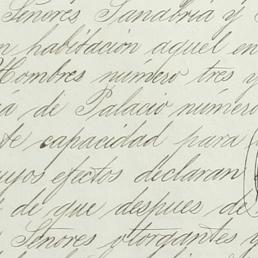 Señores Sanabria y
habitación aquel en
Hombres número tres y
de Palacio número
capacidad para
cuyos efectos declaran
de que despues de
Señores otorgantes y